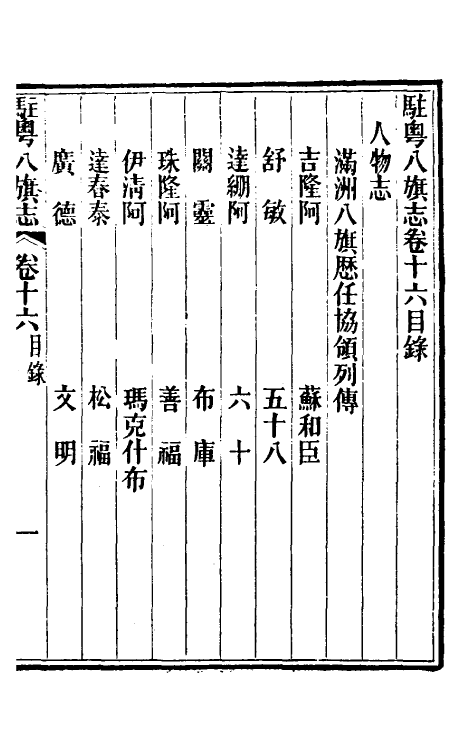 駐粵八旗志卷十六目錄
人物志
滿洲八旗歷任協領列傳
吉隆阿 蘇和臣
舒敏 五十八
達綳阿 六十
關靈 布庫
珠隆阿 善福
伊淸阿 瑪克什布
達春泰 松福
廣德 文明
駐粵八旗志 卷十六目錄 一